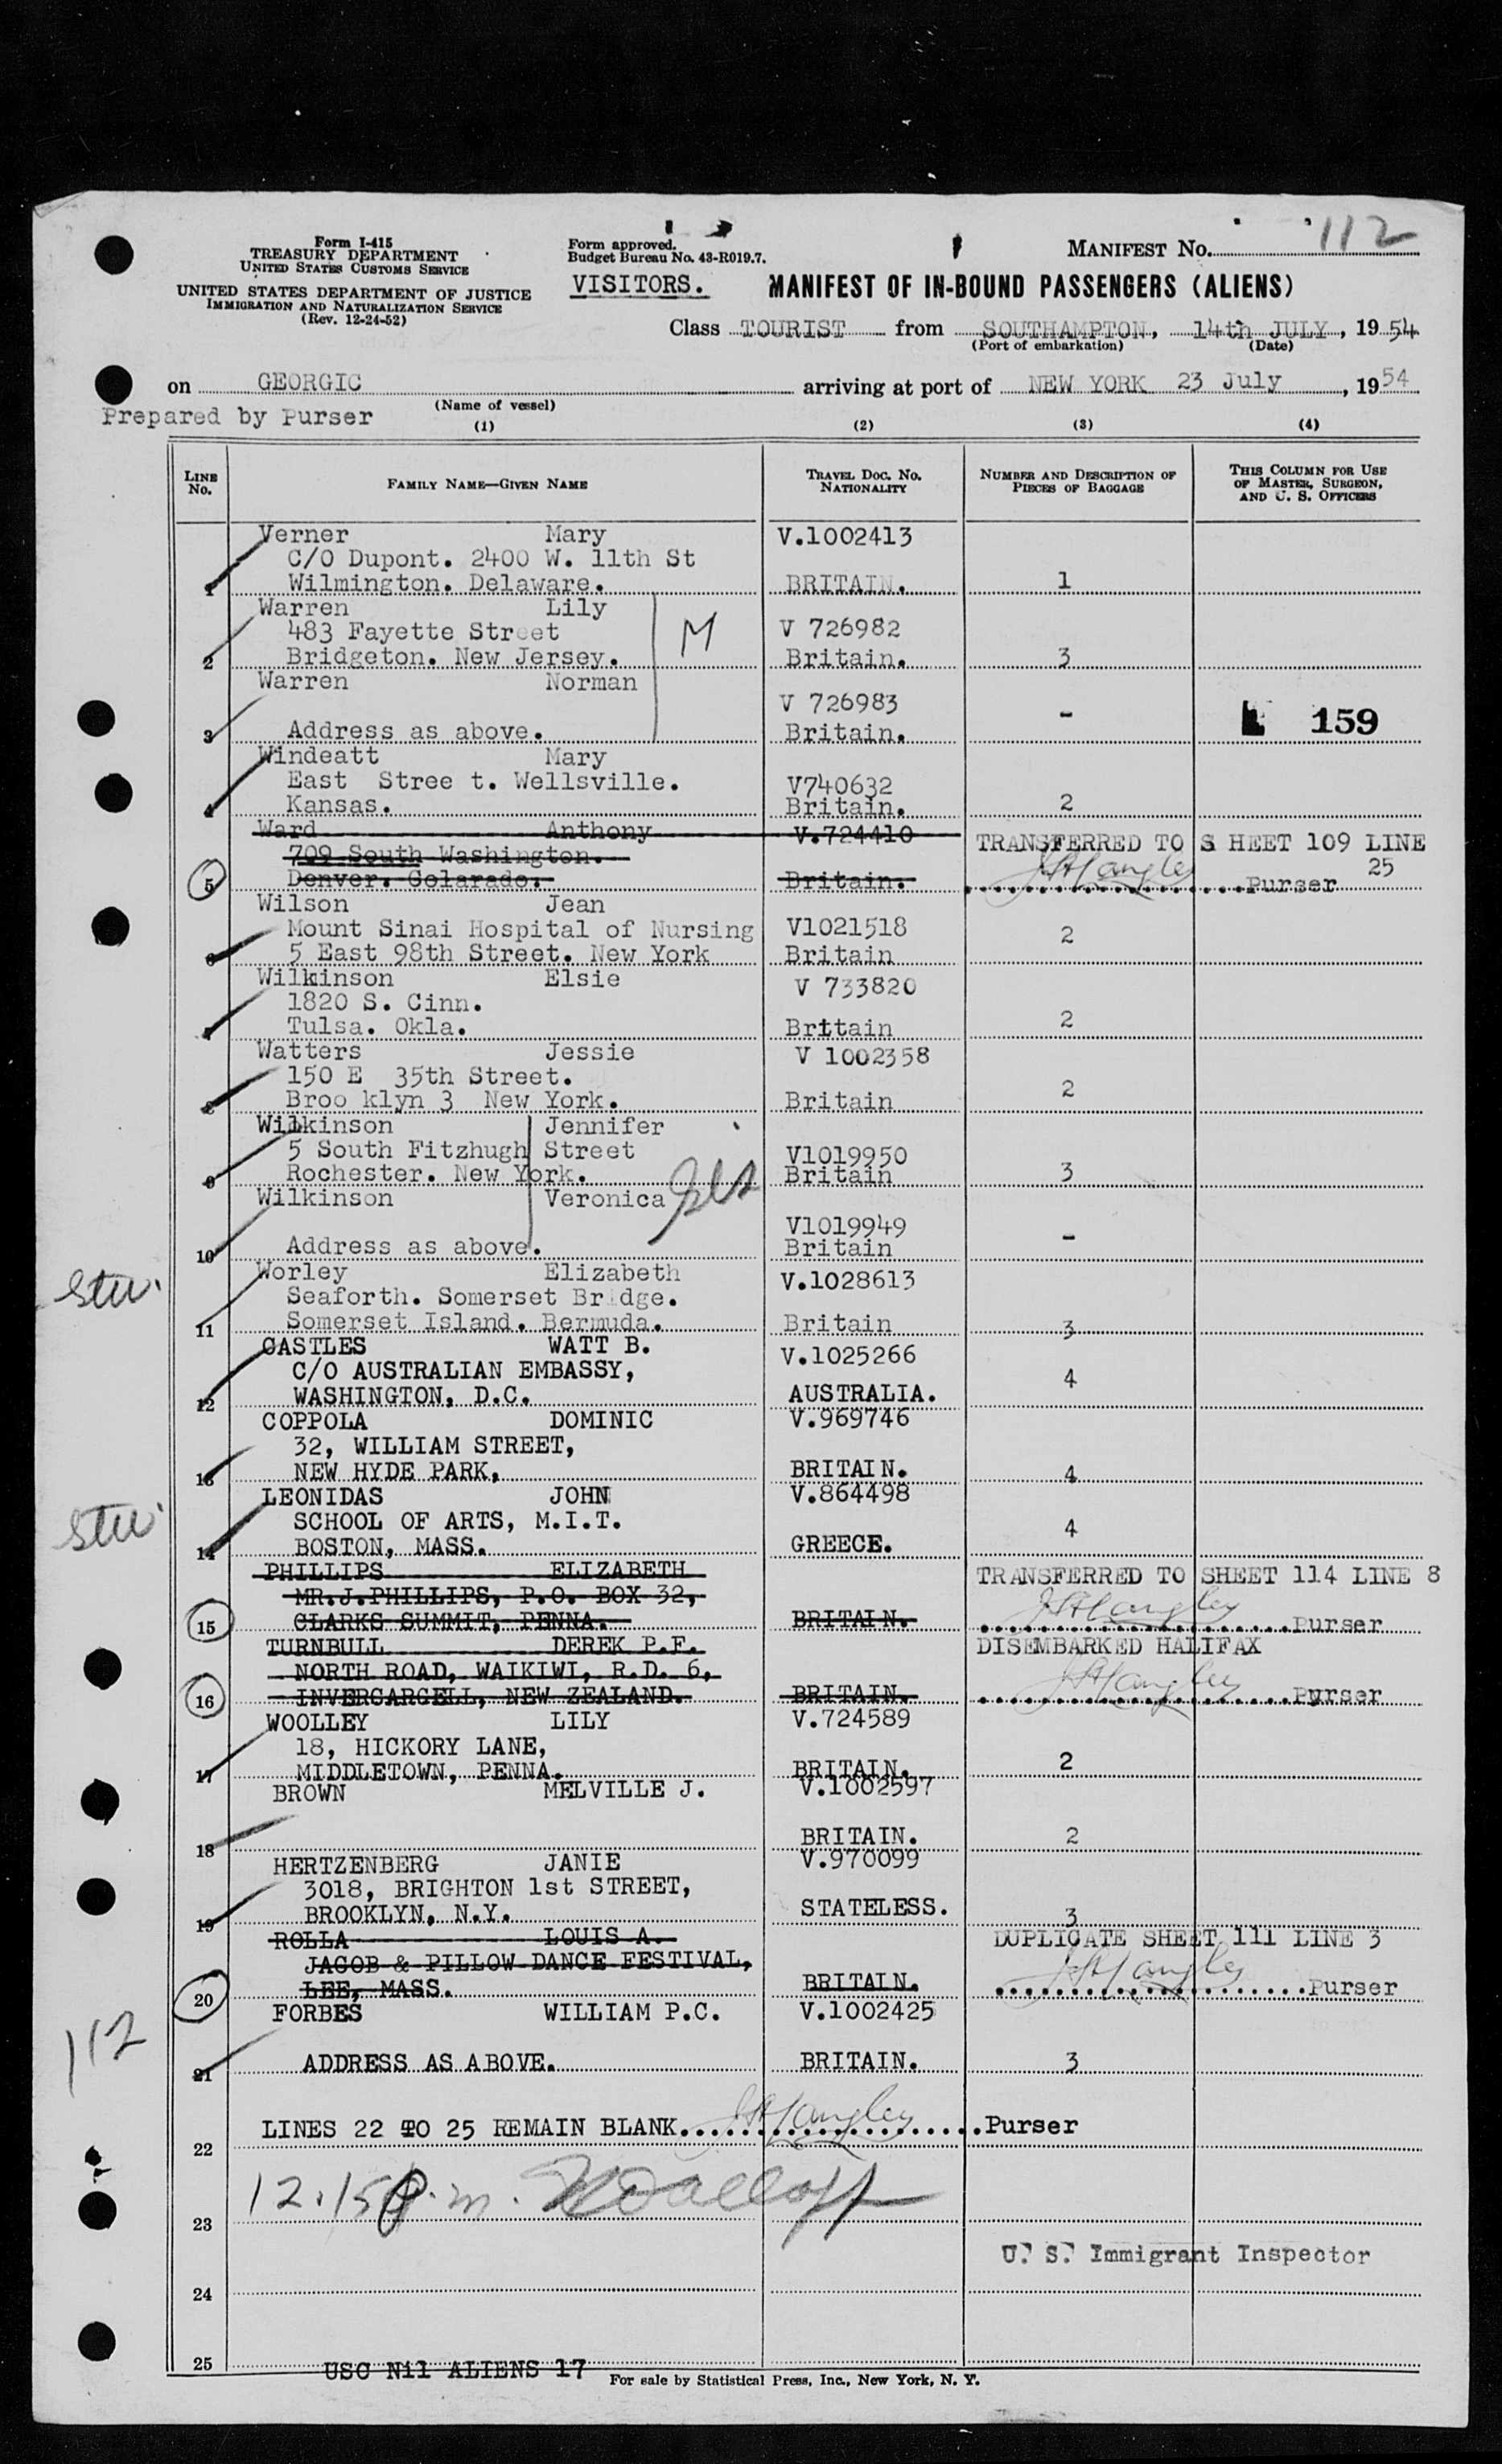 Form I-415
TREASURY DEPARTMENT
UNITED STATES CUSTOMS SERVICE
UNITED STATES DEPARTMENT OF JUSTICE
IMMIGRATION AND NATURALIZATION SERVICE
(Rev. 12-24-52)
Form approved.
Budget Bureau No. 43-R019.7.
VISITORS.
MANIFEST No. 112
MANIFEST OF IN-BOUND PASSENGERS (ALIENS)
Class TOURIST from SOUTHAMPTON, 14th JULY, 1954
(Port of embarkation) (Date)
on GEORGIC arriving at port of NEW YORK 23 July, 1954
(Name of vessel)
Prepared by Purser
(1) (2) (3) (4)
LINE No. FAMILY NAME—GIVEN NAME TRAVEL DOC. No. NATIONALITY NUMBER AND DESCRIPTION OF PIECES OF BAGGAGE THIS COLUMN FOR USE OF MASTER, SURGEON, AND U. S. OFFICERS
Verner Mary V.1002413
C/O Dupont. 2400 W. 11th St
1 Wilmington. Delaware. BRITAIN. 1
Warren Lily
483 Fayette Street M V 726982
2 Bridgeton. New Jersey. Britain. 3
Warren Norman
V 726983 -
3 Address as above. Britain. 159
Windeatt Mary
East Stree t. Wellsville. V740632
4 Kansas. Britain. 2
Ward Anthony V.724410 TRANSFERRED TO S HEET 109 LINE
709 South Washington. 25
5 Denver. Colarado. Britain. J Langley Purser
Wilson Jean
Mount Sinai Hospital of Nursing V1021518 2
6 5 East 98th Street. New York Britain
Wilkinson Elsie V 733820
1820 S. Cinn.
7 Tulsa. Okla. Brttain 2
Watters Jessie V 1002358
150 E 35th Street. 2
8 Broo klyn 3 New York. Britain
Wilkinson Jennifer
5 South Fitzhugh Street V1019950
9 Rochester. New York. Britain 3
Wilkinson Veronica
V1019949 -
10 Address as above. Britain
Worley Elizabeth V.1028613
Seaforth. Somerset Br dge.
11 Somerset Island. Bermuda. Britain 3
CASTLES WATT B. V.1025266
C/O AUSTRALIAN EMBASSY, 4
12 WASHINGTON, D.C. AUSTRALIA.
COPPOLA DOMINIC V.969746
32, WILLIAM STREET,
13 NEW HYDE PARK, BRITAIN. 4
LEONIDAS JOHN V.864498
SCHOOL OF ARTS, M.I.T. 4
14 BOSTON, MASS. GREECE.
PHILLIPS ELIZABETH TRANSFERRED TO SHEET 114 LINE 8
MR.J.PHILLIPS, P.O. BOX 32,
15 CLARKS SUMMIT, PENNA. BRITAIN. J Langley Purser
TURNBULL DEREK P.F. DISEMBARKED HALIFAX
NORTH ROAD, WAIKIWI, R.D. 6,
16 INVERCARGELL, NEW ZEALAND. BRITAIN. J Langley Purser
WOOLLEY LILY V.724589
18, HICKORY LANE,
17 MIDDLETOWN, PENNA. BRITAIN. 2
BROWN MELVILLE J. V.1002597
18 BRITAIN. 2
HERTZENBERG JANIE V.970099
3018, BRIGHTON 1st STREET,
19 BROOKLYN, N.Y. STATELESS. 3
ROLLA LOUIS A. DUPLICATE SHEET 111 LINE 3
JACOB & PILLOW DANCE FESTIVAL,
20 LEE, MASS. BRITAIN. J Langley Purser
FORBES WILLIAM P.C. V.1002425
112
21 ADDRESS AS ABOVE. BRITAIN. 3
22 LINES 22 TO 25 REMAIN BLANK. J Langley Purser
23 12.15 p.m.
U. S. Immigrant Inspector
24
25 USC Nil ALIENS 17
For sale by Statistical Press, Inc., New York, N. Y.